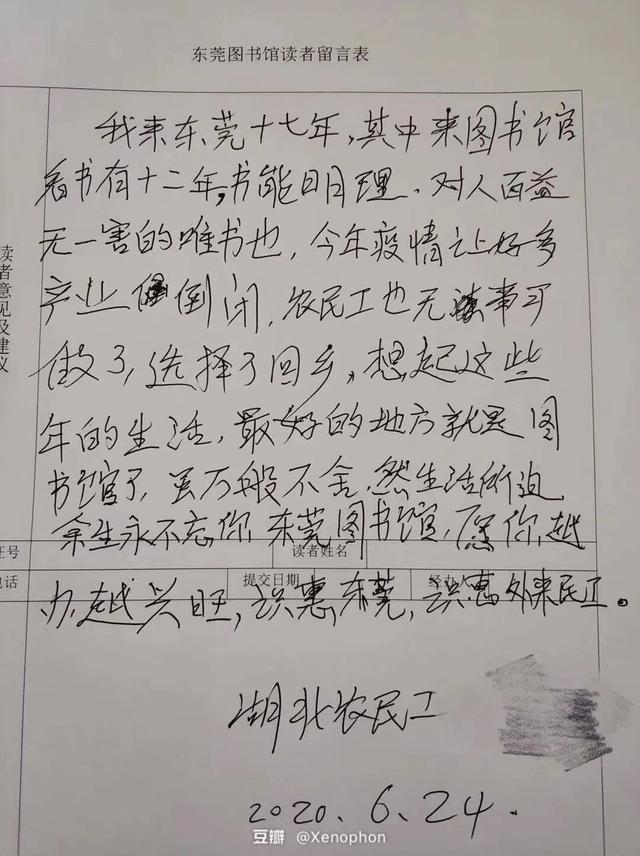 东莞图书馆读者留言表
我来东莞十七年,其中来图书馆
看书有十二年,书能明理、对人百益
无一害的唯书也,今年疫情让好多
产业倒闭,农民工也无事可
做了,选择了回乡,想起这些
年的生活,最好的地方就是图
书馆了,虽万般不舍,然生活所迫
余生永不忘你,东莞图书馆,愿你越
办越兴旺,识惠东莞,识惠外来民工。
读者意见及建议
证号
读者姓名
电话
提交日期
经办人
湖北农民工
2020.6.24.
豆瓣 @Xenophon